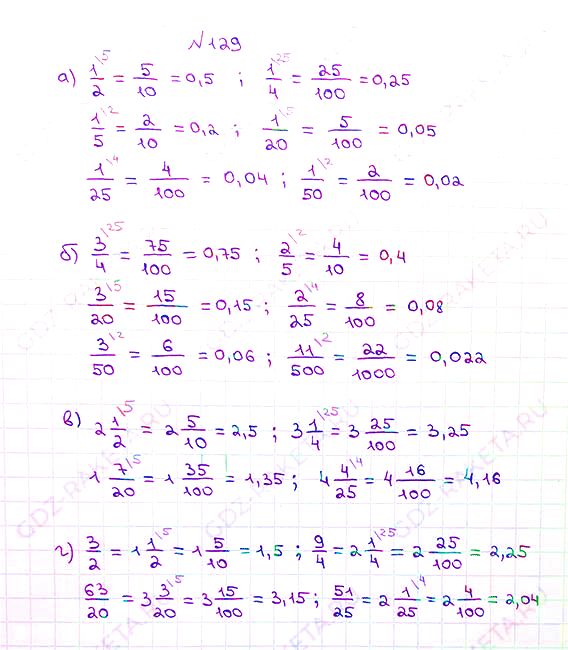 №129
а) 1/2 \5 = 5/10 = 0,5 ; 1/4 \25 = 25/100 = 0,25
1/5 \2 = 2/10 = 0,2 ; 1/20 \5 = 5/100 = 0,05
1/25 \4 = 4/100 = 0,04 ; 1/50 \2 = 2/100 = 0,02
б) 3/4 \25 = 75/100 = 0,75 ; 2/5 \2 = 4/10 = 0,4
3/20 \5 = 15/100 = 0,15 ; 2/25 \4 = 8/100 = 0,08
3/50 \2 = 6/100 = 0,06 ; 11/500 \2 = 22/1000 = 0,022
в) 2 1/2 \5 = 2 5/10 = 2,5 ; 3 1/4 \25 = 3 25/100 = 3,25
1 7/20 \5 = 1 35/100 = 1,35 ; 4 4/25 \4 = 4 16/100 = 4,16
г) 3/2 = 1 1/2 \5 = 1 5/10 = 1,5 ; 9/4 = 2 1/4 \25 = 2 25/100 = 2,25
63/20 = 3 3/20 \5 = 3 15/100 = 3,15 ; 51/25 = 2 1/25 \4 = 2 4/100 = 2,04
GDZ-RAKETA.RU